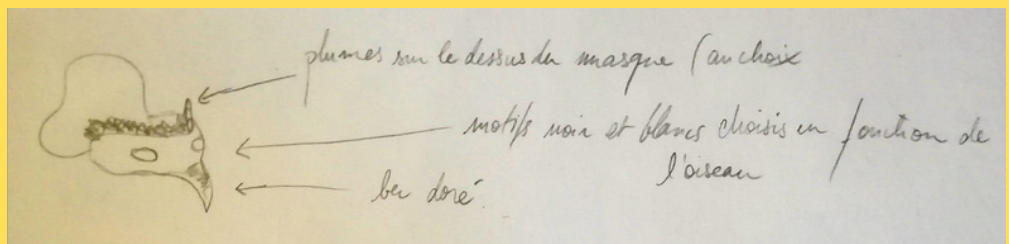 plumes sur le dessus du masque (au choix
motifs noir et blancs choisis en fonction de
l'oiseau
bec doré.